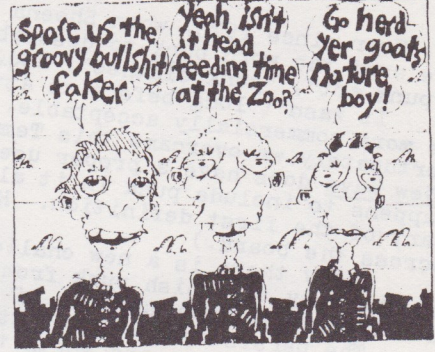 Spare us the
groovy bullshit
faker
Yeah, isn't
it head
feeding time
at the Zoo?
Go herd
yer goats
nature
boy!